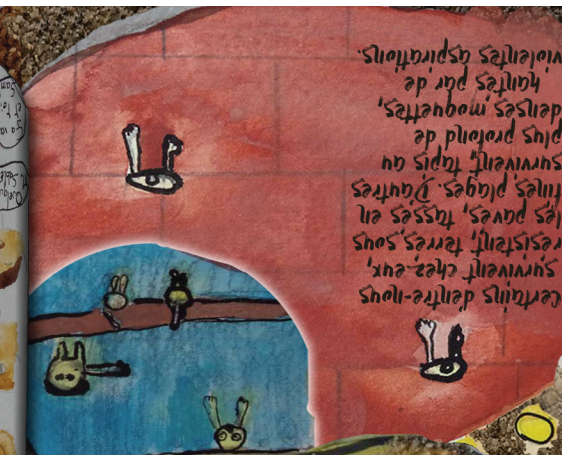 Certains d'entre-nous
survivent chez-eux,
résistent, terrés sous
les pavés, tassés en
fines plages. D'autres
survivent, tapis au
plus profond de
denses moquettes,
hantés par de
violentes aspirations.